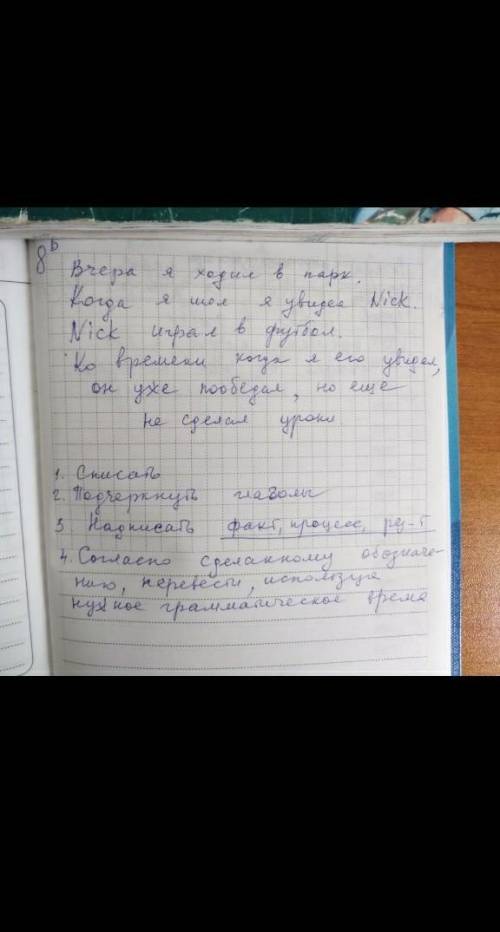 8 b
Вчера я ходил в парк.
Когда я шол я увидел Nick.
Nick играл в футбол.
Ко времени когда я его увидел,
он уже пообедал, но еще
не сделал уроки
1. Списать
2. Подчеркнуть глаголы
3 Надписать факт, процесс, рез-т
4. Согласно сделанному обозначе-
нию, перевести, используя
нужное грамматическое время